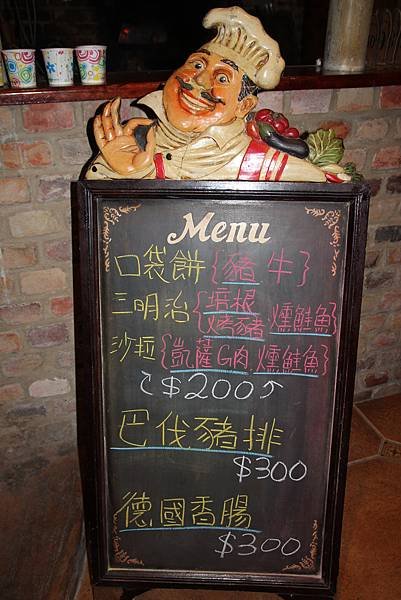 Menu
口袋餅{豬 牛}
三明治{培根 烤豬 燻鮭魚}
沙拉{凱薩G肉, 燻鮭魚}
$200
巴伐豬排
$300
德國香腸
$300